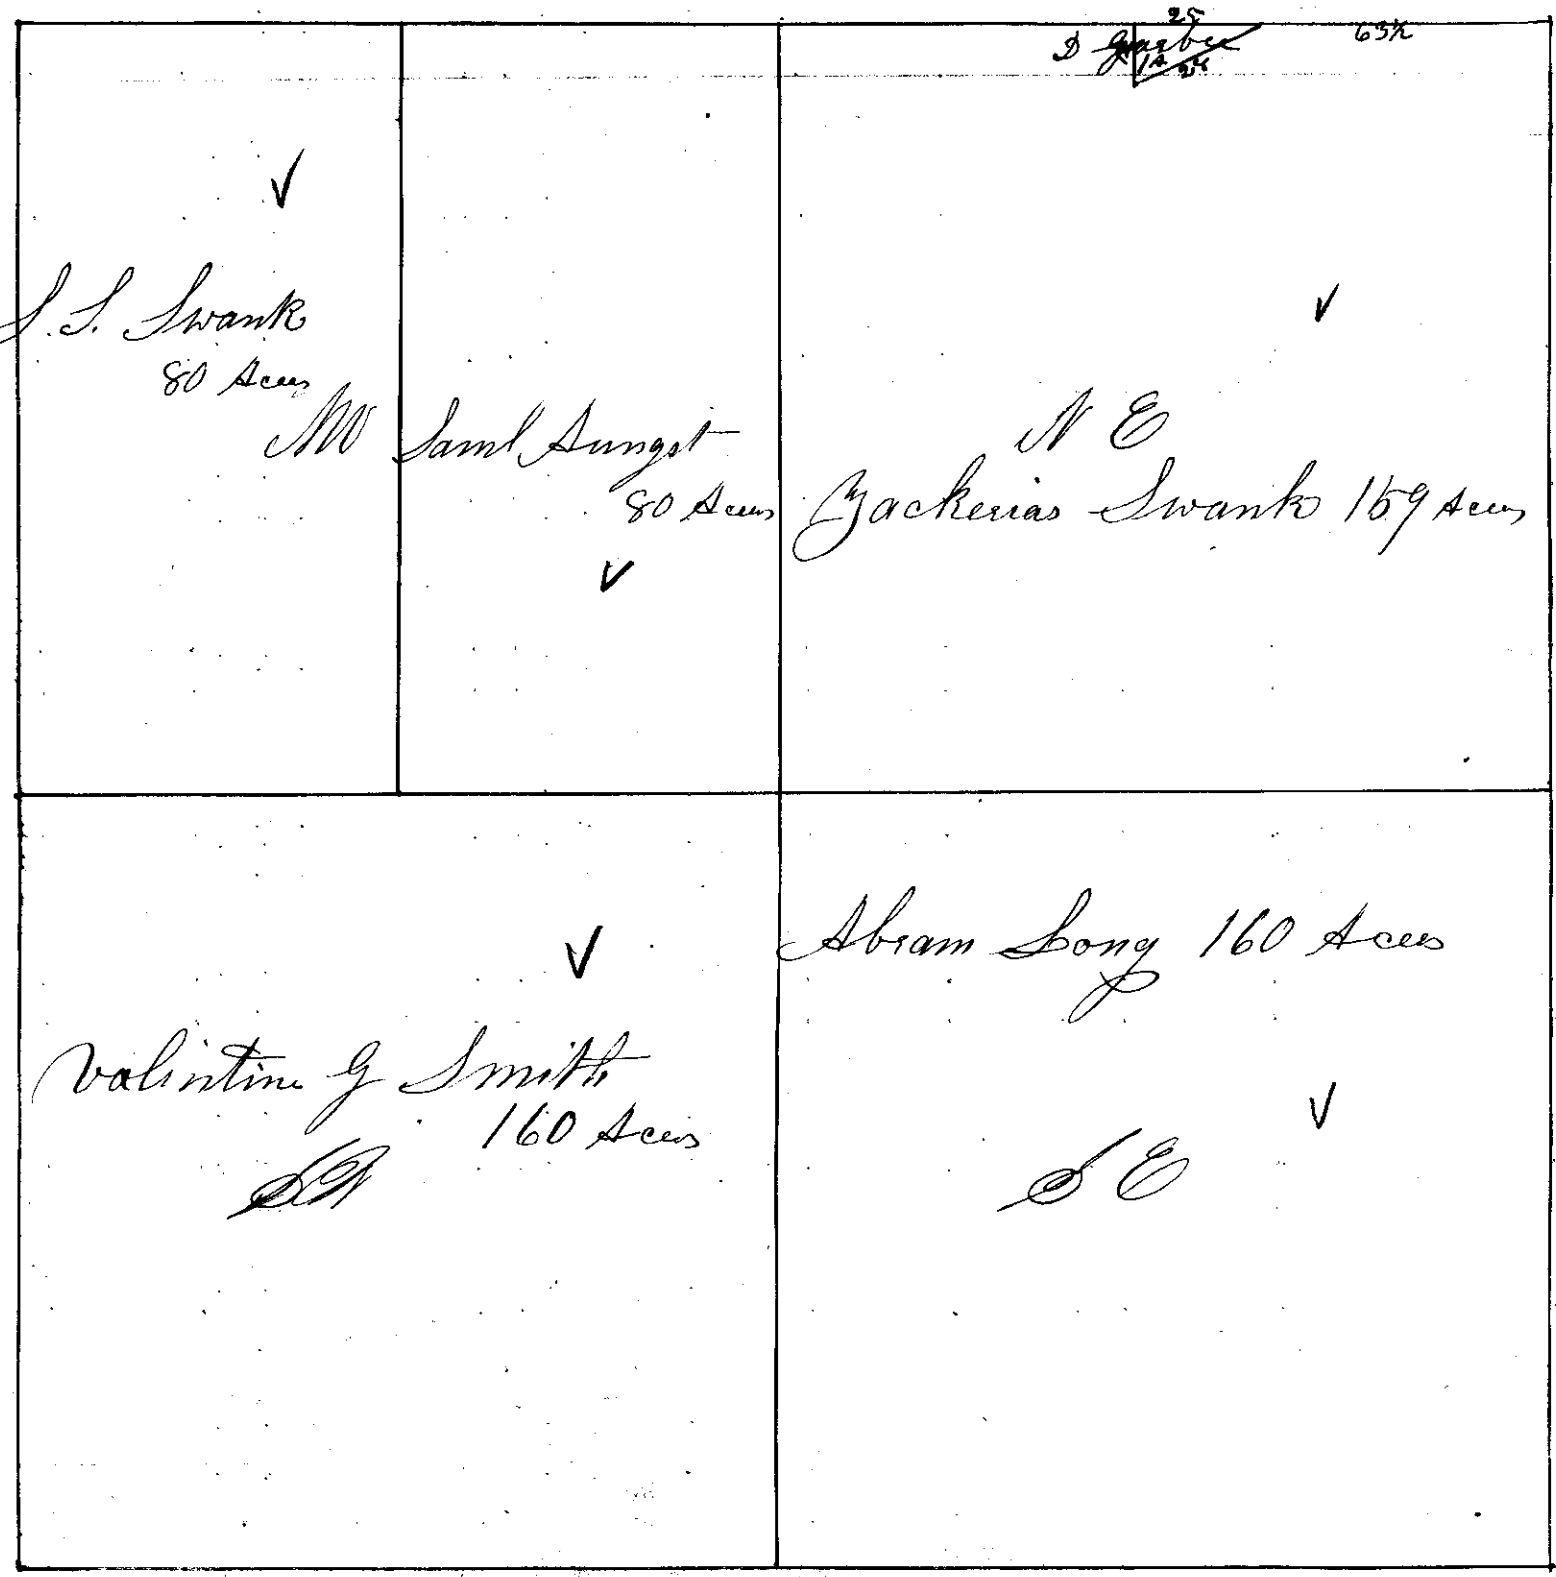 25
D Garber 63½
1A
S. S. Swank
80 Acres
NW
Saml Aungst
80 Acres
N E
Zackerias Swank 159 Acres
Valintine G Smith
160 Acres
SW
Abram Long 160 Acres
S E